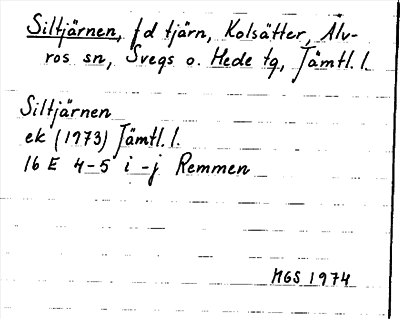 Siltjärnen, fd tjärn, Kolsätter, Älv-
ros sn, Svegs o. Hede tg, Jämtl. l.
Siltjärnen
ek (1973) Jämtl. l.
16 E 4-5 i-j Remmen
MGS 1974